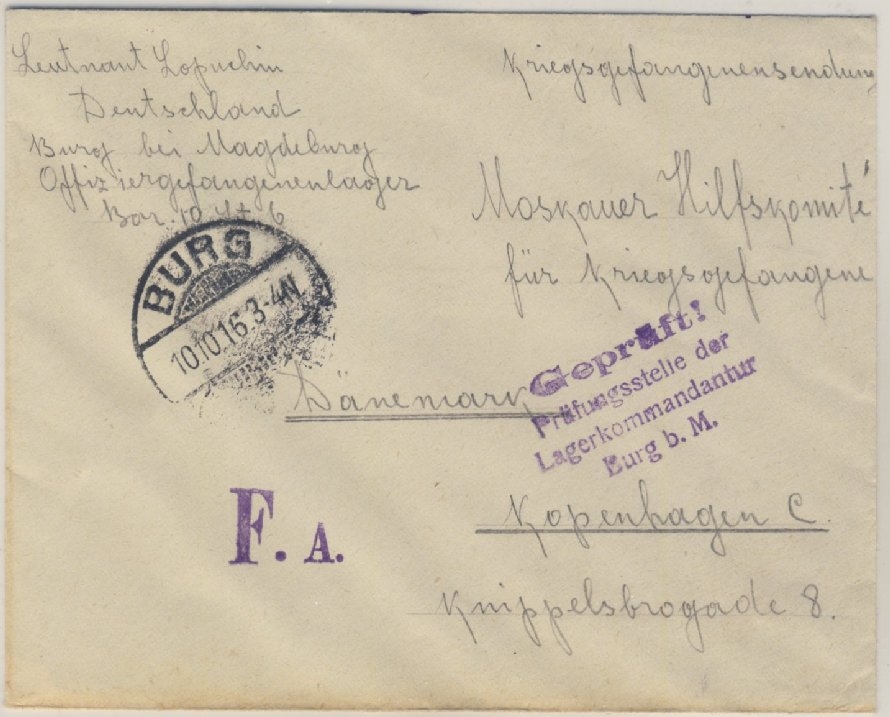 Leutnant Lopuchin
Deutschland
Burg bei Magdeburg
Offiziergefangenenlager
Bar. 10 St 6
Kriegsgefangenensendung
Moskauer Hilfskomité
für Kriegsgefangene
BURG
10.10.16.3-4N.
Geprüft!
Prüfungsstelle der
Lagerkommandantur
Burg b. M.
Dänemark
F. A.
Kopenhagen C.
Knippelsbrogade 8.